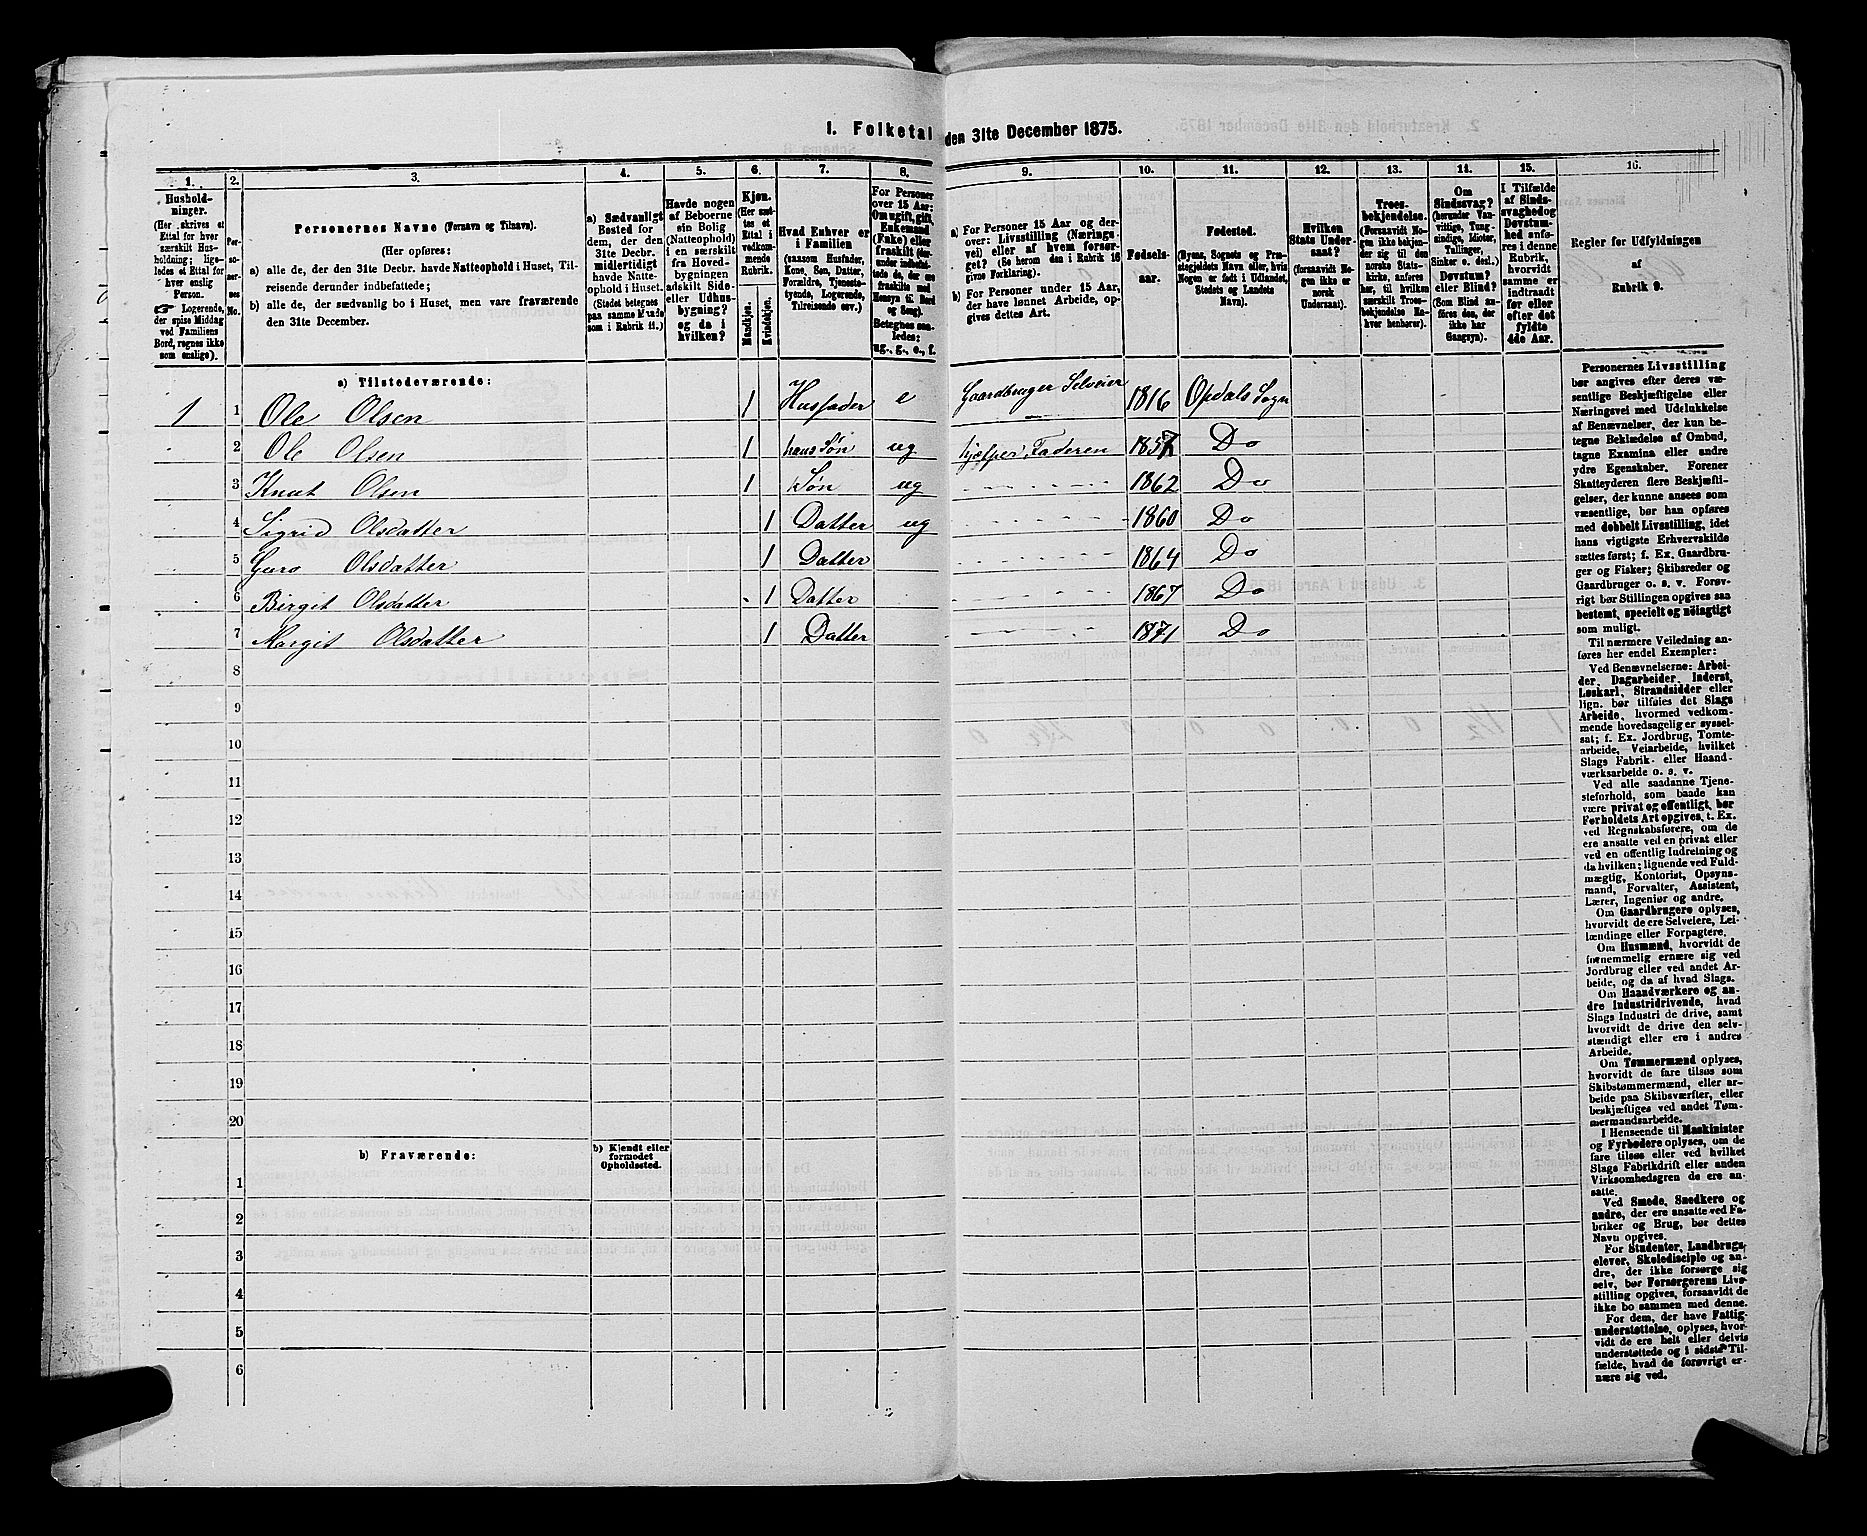 1. Folketal den 31te December 1875.
1. 2. 3. 4. 5. 6. 7. 8. 9. 10. 11. 12. 13. 14. 15. 16.
Hushold-
ninger.
(Her skrives et
Ettal for hver
særskilt Hus-
holdning; lige-
ledes et Ettal for
hver enslig
Person.
Logerende,
der spise Middag
ved Familiens
Bord, regnes ikke
som enslige).
Per-
so-
ner-
nes
No.
Personernes Navne (Fornavn og Tilnavn).
(Her opføres:
a) alle de, der den 31te Decbr. havde Natteophold i Huset, Til-
reisende derunder indbefattede;
b) alle de, der sædvanlig bo i Huset, men vare fraværende
den 31te December.
a) Sædvanligt
Bosted for
dem, der den
31te Decbr.
midlertidigt
havde Natte-
ophold i Huset.
(Stedet betegnes
paa samme Maade
som i Rubrik 11.)
Havde nogen
af Beboerne
sin Bolig
(Natteophold)
i en særskilt
fra Hoved-
bygningen
adskilt Side-
eller Udhus-
bygning?
og da i
hvilken?
Kjøn.
(Her sæt-
tes et
Ettal i
vedkom-
mende
Rubrik.
Mandkjøn.
Kvindekjøn.
Hvad Enhver er
i Familien
(saasom Husfader,
Kone, Søn, Datter,
Forældre, Tjeneste-
tyende, Logerende,
Tilreisende osv.)
For Personer
over 15 Aar:
Om ugift, gift,
Enkemand
(Enke) eller
fraskilt (der-
under indbefat-
tede de, der ere
fraskilte med
Hensyn til Bord
og Seng).
Betegnes saa-
ledes:
ug., g., e., f.
a) For Personer 15 Aar og der-
over: Livsstilling (Nærings-
vei) eller af hvem forsør-
get? (Se herom den i Rubrik 16
givne Forklaring).
b) For Personer under 15 Aar,
der have lønnet Arbeide, op-
gives dettes Art.
Fødsels-
aar.
Fødested.
(Byens, Sognets og Præ-
stegjeldets Navn eller, hvis
Nogen er født i Udlandet,
Stedets og Landets
Navn).
Hvilken
Stats Under-
saat?
(forsaavidt No-
gen ikke er
norsk
Undersaat).
Troes-
bekjendelse.
(Forsaavidt No-
gen ikke bekjen-
der sig til den
norske Stats-
kirke, anføres
her, til hvilken
særskilt Troes-
bekjendelse En-
hver henhører).
Om
Sindssvag?
(herunder Van-
vittige, Tung-
sindige, Idioter,
Tullinger,
Sinker o. desl.)
Døvstum?
eller Blind?
(Som Blind an-
føres den, der
ikke har
Gangsyn).
I Tilfælde
af Sinds-
svaghed og
Døvstum-
hed anfø-
res i denne
Rubrik,
hvorvidt
samme er
indtraadt
før eller
efter det
fyldte
4de Aar.
Regler for Udfyldningen
af
Rubrik 9.
a) Tilstedeværende:
1 1 Ole Olsen 1 Husfader e Gaardbruger Selveier 1816 Opdals Sogn
2 Ole Olsen 1 hans Søn ug hjælper Faderen 1857 Do
3 Knut Olsen 1 Søn ug 1862 Do
4 Sigrid Olsdatter 1 Datter ug 1860 Do
5 Guro Olsdatter 1 Datter 1864 Do
6 Birgit Olsdatter 1 Datter 1867 Do
7 Margit Olsdatter 1 Datter 1871 Do
8
9
10
11
12
13
14
15
16
17
18
19
20
b) Fraværende:
b) Kjendt eller
formodet
Opholdssted.
1
2
3
4
5
6
Personernes Livsstilling
bør angives efter deres væ-
sentlige Beskjæftigelse eller
Næringsvei med Udelukkelse
af Benævnelser, der kun be-
tegne Beklædelse af Ombud,
tagne Examina eller andre
ydre Egenskaber. Forener
Skatteyderen flere Beskjæfti-
gelser, der kunne ansees som
væsentlige, bør han opføres
med dobbelt Livsstilling, idet
hans vigtigste Erhvervskilde
sættes først; f. Ex. Gaardbru-
ger og Fisker; Skibsreder og
Gaardbruger o. s. v. Forøv-
rigt bør Stillingen opgives saa
bestemt, specielt og nøiagtigt
som muligt.
Til nærmere Veiledning an-
føres her endel Exempler:
Ved Benævnelserne: Arbei-
der, Dagarbeider, Inderst,
Løskarl, Strandsidder eller
lign. bør tilføies det Slags
Arbeide, hvormed vedkom-
mende hovedsagelig er syssel-
sat; f. Ex. Jordbrug, Tomte-
arbeide, Veiarbeide, hvilket
Slags Fabrik- eller Haand-
værksarbeide o. s. v.
Ved alle saadanne Tjene-
steforhold, som baade kan
være privat og offentligt, bør
Forholdets Art opgives, t. Ex.
ved Regnskabsførere, om de
ere ansatte ved en privat eller
ved en offentlig Indretning og
da hvilken; lignende ved Fuld-
mægtig, Kontorist, Opsyns-
mand, Forvalter, Assistent,
Lærer, Ingeniør og andre.
Om Gaardbrugere oplyses,
hvorvidt de ere Selveiere, Lei-
lændinge eller Forpagtere.
Om Husmænd, hvorvidt de
fornemmelig ernære sig ved
Jordbrug eller ved andet Ar-
beide, og da af hvad Slags.
Om Haandværkere og an-
dre Industridrivende, hvad
Slags Industri de drive, samt
hvorvidt de drive den selv-
stændigt eller ere i andres
Arbeide.
Om Tømmermænd oplyses,
hvorvidt de fare tilsøs som
Skibstømmermænd, eller ar-
beide paa Skibsværfter, eller
beskjæftiges ved andet Tøm-
mermandsarbeide.
I Henseende til Maskinister
og Fyrbødere oplyses, om de
fare tilsøs eller ved hvilket
Slags Fabrikdrift eller anden
Virksomhedsgren de ere an-
satte.
Ved Smede, Snedkere og
andre, der ere ansatte ved Fa-
briker og Brug, bør dettes
Navn opgives.
For Studenter, Landbrugs-
elever, Skoledisciple og an-
dre, der ikke forsørge sig
selv, bør Forsørgerens Livs-
stilling opgives, forsaavidt de
ikke bo sammen med denne.
For dem, der have Fattig-
understøttelse, oplyses, hvor-
vidt de ere helt eller delvis
understøttede og i sidste Til-
fælde, hvad de forøvrigt er-
nære sig ved.